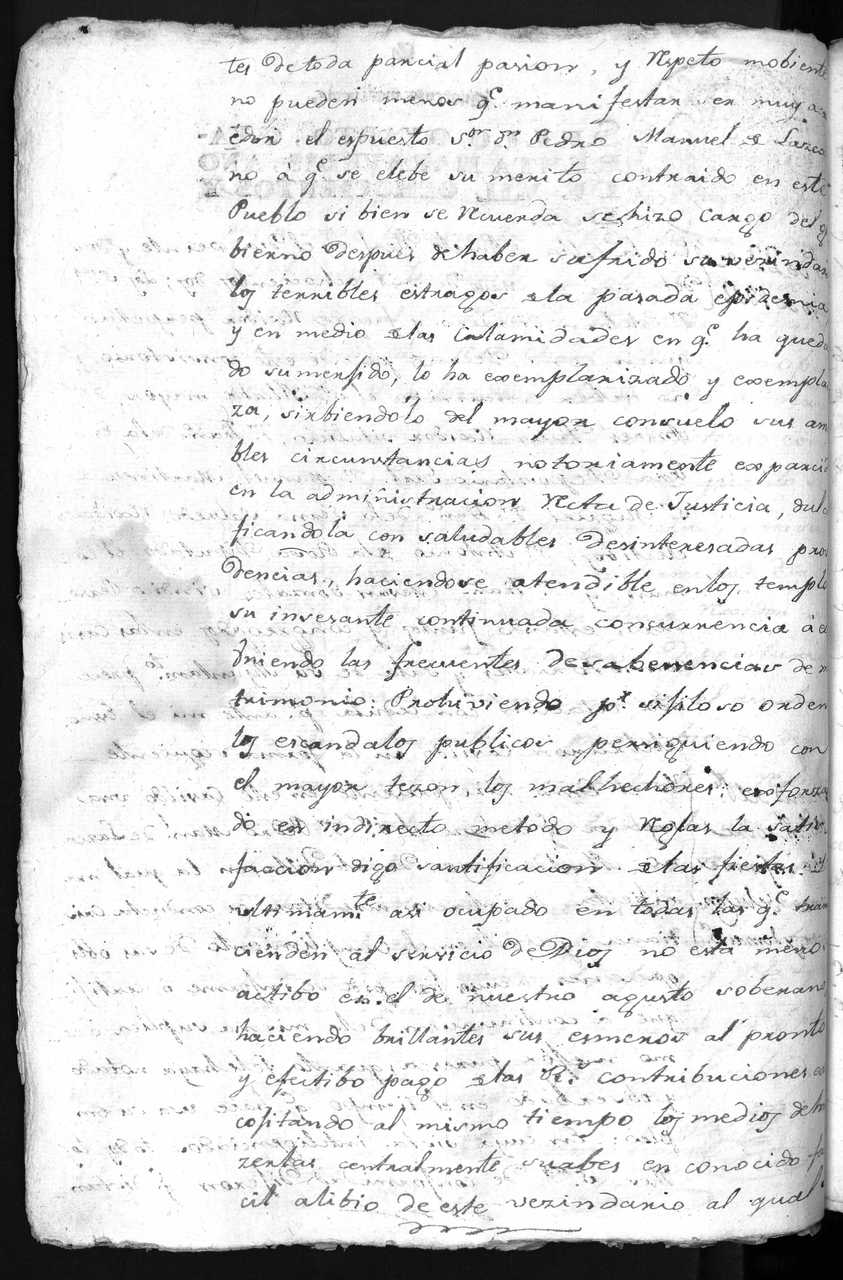 tes de toda parcial pasion, y Respeto mobiente
no pueden menos q.e manifestar ser muy a
edor el espuesto S.or d.n Pedro Manuel de Lazca
no á q.e se debe su merito contraido en este
Pueblo si bien se Recuerda se hizo cargo del go
bierno despues de haber sufrido su vezindar
los terribles estragos de la pasada epidemia
y en medio de las calamidades en q.e ha queda
do sumersido, lo ha exemplarizado y exempla
za, sirbiendolo del mayor consuelo sus am
bles circunstancias notoriamente exparcid
en la administracion Recta de Justicia, dulc
ficandola con saludables desinteresadas prov
dencias, haciendose atendible en los templo
su insesante continuada concurrencia á e
Vniendo las frecuentes desabenencias de m
trimonio: Prohiviendo p.r sijiloso orden
los escandalos publicos persiguiendo con
el mayor tezon, los malhechores: exforza
do en indirecto metodo y Reglas la satis
faccion digo santificacion de las fiestas y
ultimam.te asi ocupado en todas las q.e tran
cienden al servicio de Dios no está meno
actibo en el de nuestro agusto soberano
haciendo brillantes sus esmeros al pronto
y efectibo pago de las R.s contribuciones ex
cojitando al mismo tiempo los medios de ha
zerlas centralmente suabes en conocido fa
cil alibio de este vezindario al qual